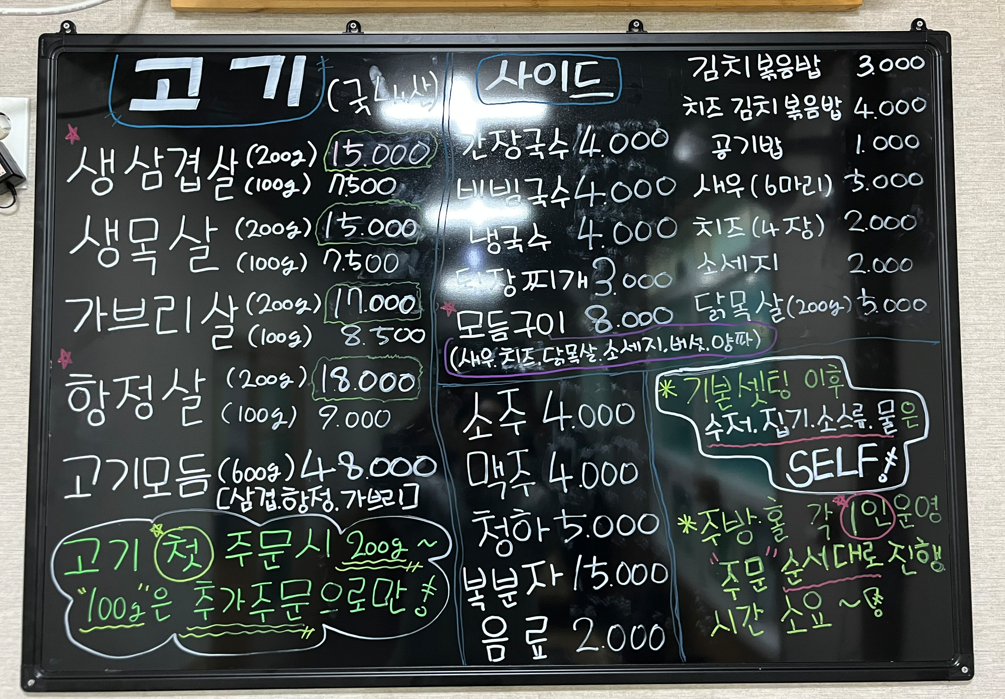 고기 (국내산)
생삼겹살 (200g) 15.000
(100g) 7500
생목살 (200g) 15.000
(100g) 7.500
가브리살 (200g) 17.000
(100g) 8.500
항정살 (200g) 18.000
(100g) 9.000
고기모듬 (600g) 48.000
[삼겹.항정.가브리]
고기 첫 주문시 200g~
"100g"은 추가주문으로만!
사이드
간장국수 4.000
비빔국수 4.000
냉국수 4.000
된장찌개 3.000
모듬구이 8.000
(새우.치즈.닭목살.소세지.버섯.양파)
김치볶음밥 3.000
치즈 김치볶음밥 4.000
공기밥 1.000
새우(6마리) 5.000
치즈(4장) 2.000
소세지 2.000
닭목살(200g) 5.000
소주 4.000
맥주 4.000
청하 5.000
복분자 15.000
음료 2.000
*기본셋팅 이후
수저.집기.소스류.물은
SELF!
*주방.홀 각 1인운영
"주문" 순서대로 진행
시간 소요~